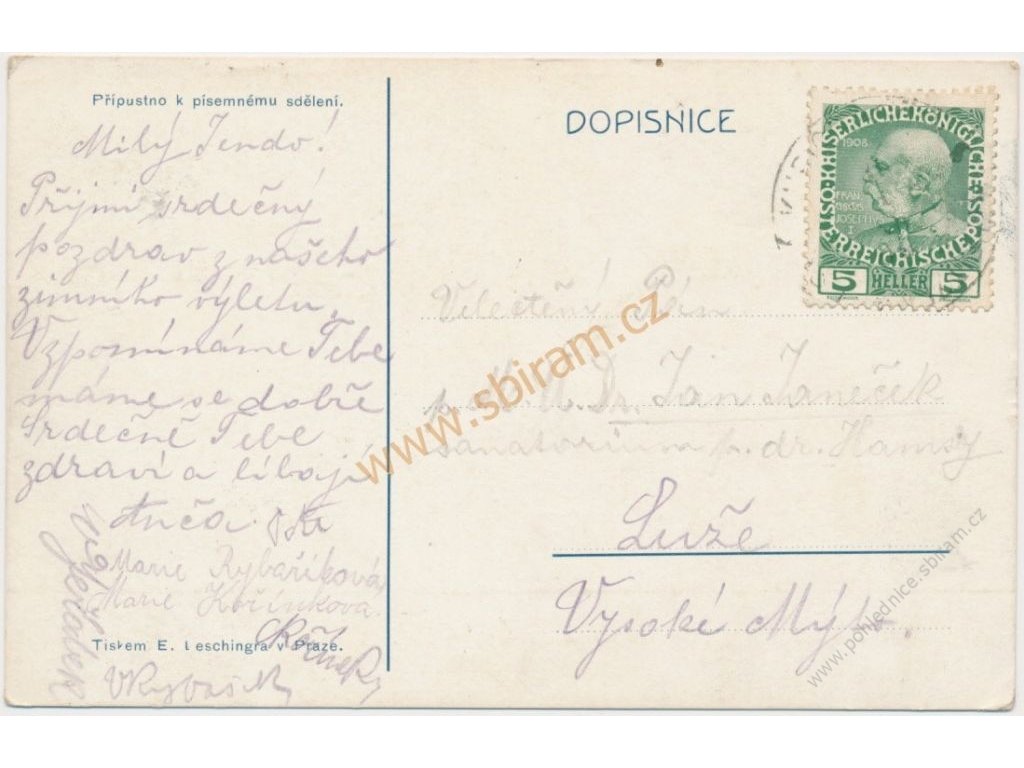 Přípustno k písemnému sdělení.
Milý Jendo!
Přijmi srdečný
pozdrav z našeho
zimního výletu.
Vzpomínáme Tebe
máme se dobře
Srdečně Tebe
zdraví a líbají
Anča
Marie Rybaříková
Marie Kořínkova
Tiskem E. Leschingra v Praze.
DOPISNICE
KAISERLICHE KÖNIGLICHE
ÖSTERREICHISCHE POST
1908
FRANC
IOSEPHVS
I
5 HELLER 5
Velectěný Pán
p. Dr. Jan Janeček
sanatorium p. dr. Hamzy
Luže
Vysoké Mýto.
www.sbiram.cz
www.pohlednice.sbiram.cz